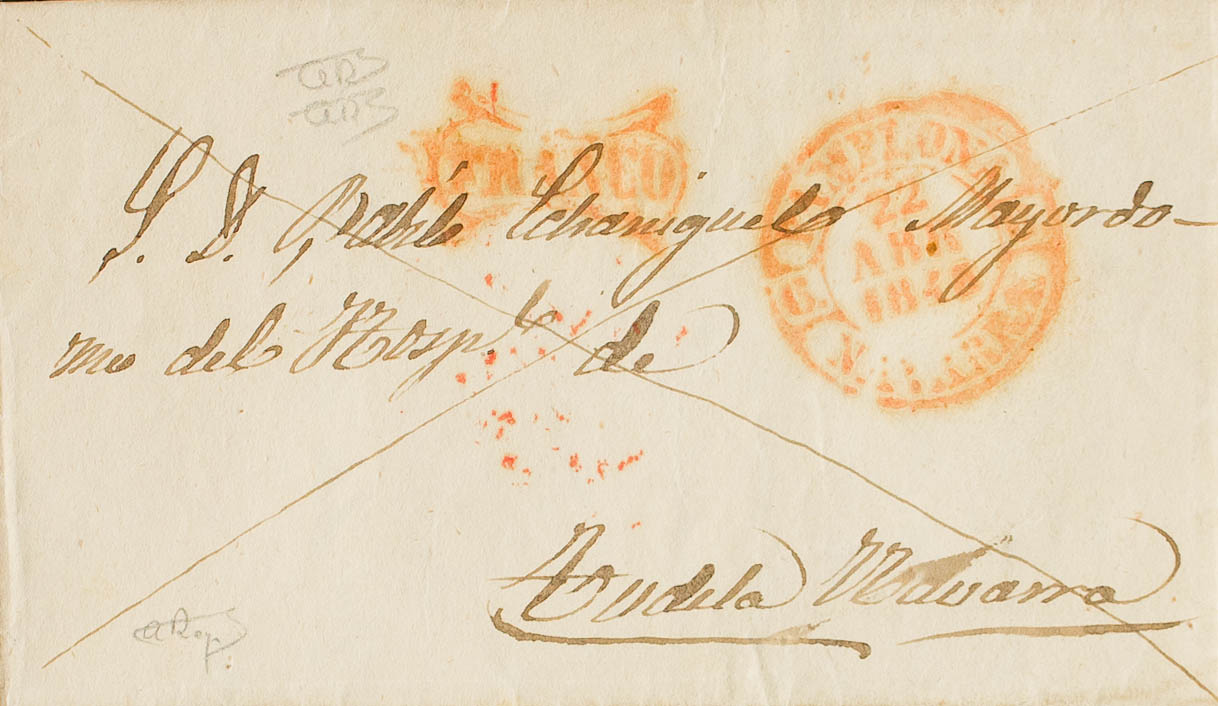 FRANCO
PAMPLONA
22
ABR
184
NAVARRA.
S. D. Pablo Echaniguel Mayordo-
mo del Hosp.l de
Tudela Navarra